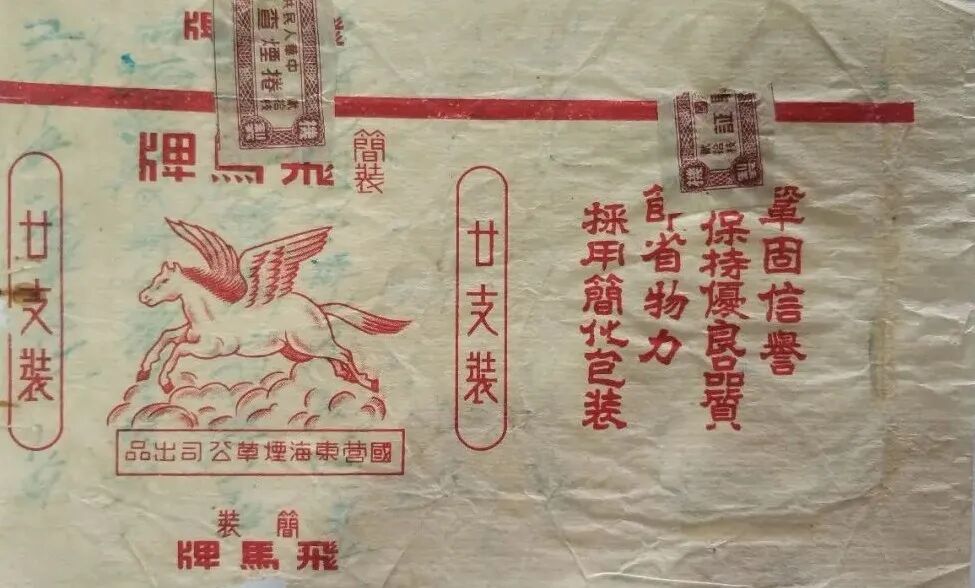 牌
中華人民共
捲煙查
貳拾枝
機製
證
貳拾枝
機製
簡裝
飛馬牌
廿支裝
國營東海煙草公司出品
廿支裝
簡裝
飛馬牌
鞏固信譽
保持優良品質
節省物力
採用簡化包裝